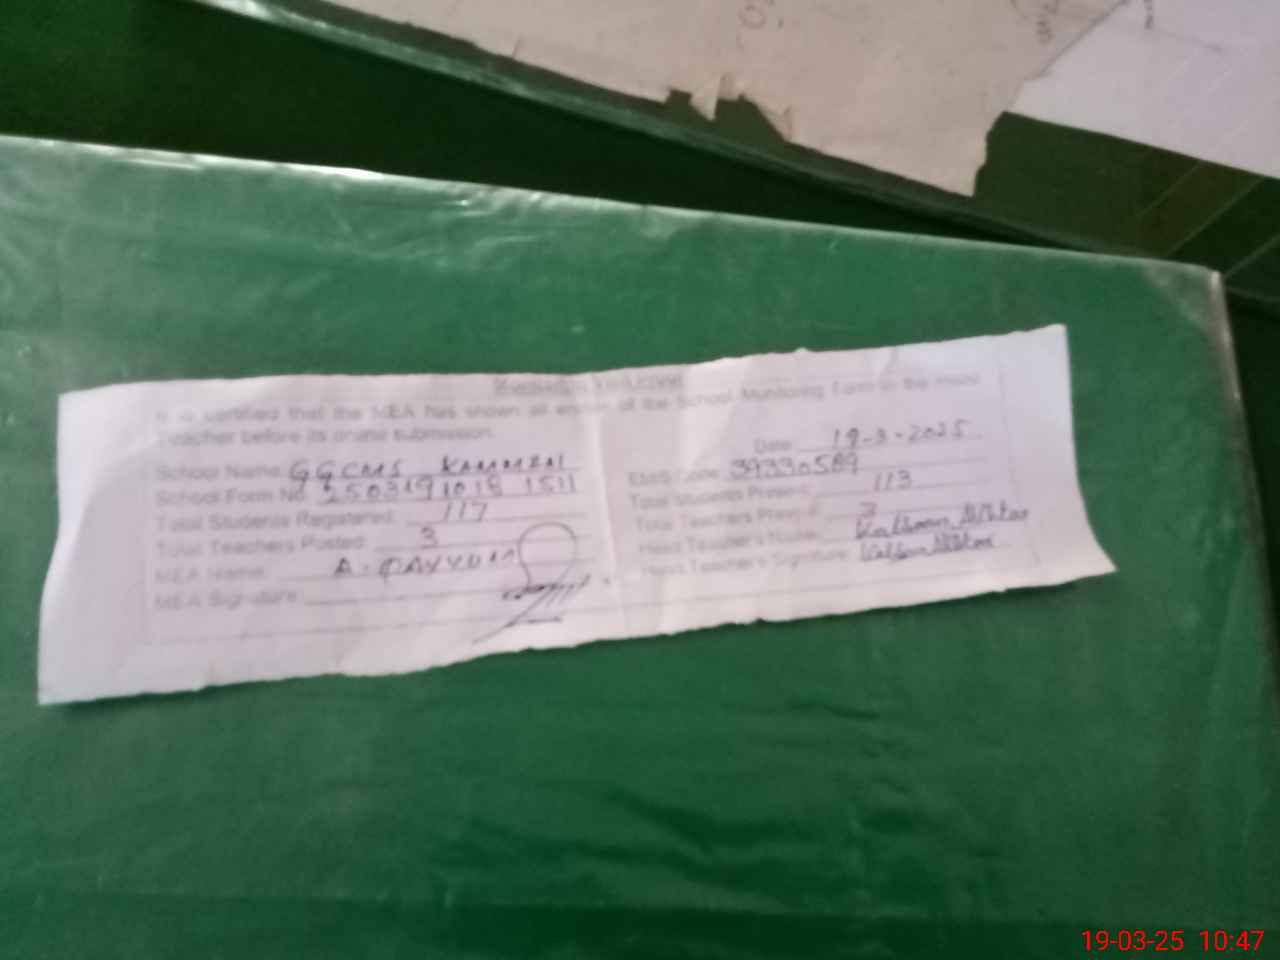 It is certified that the MEA has shown all entries of the School Monitoring Form to the Head
Teacher before its online submission.
Date: 19-3-2025
School Name: GGCMS KAMMZAI
EMIS Code: 39330589
School Form No. 250319 1018 1511
Total Students Present: 113
Total Students Registered: 117
Total Teachers Present: 3
Total Teachers Posted: 3
Head Teacher's Name:
MEA Name: A. QAYYUM
Head Teacher's Signature:
MEA Signature:
19-03-25 10:47